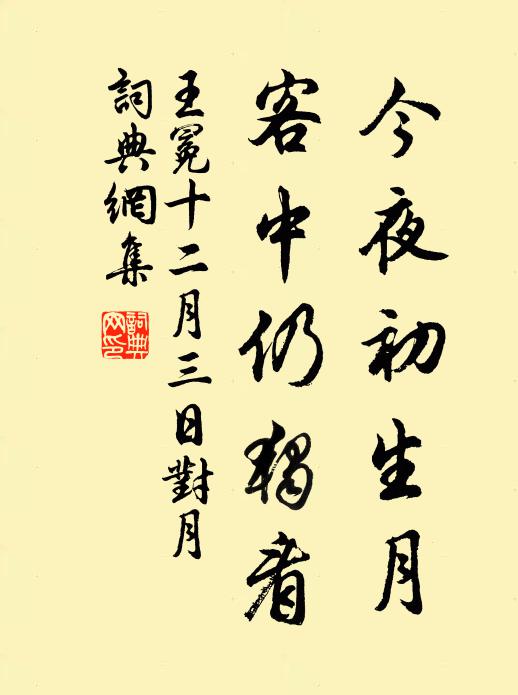 今夜初生月
客中仍獨看
王冕十二月三日對月
詞典網集
詞典網印